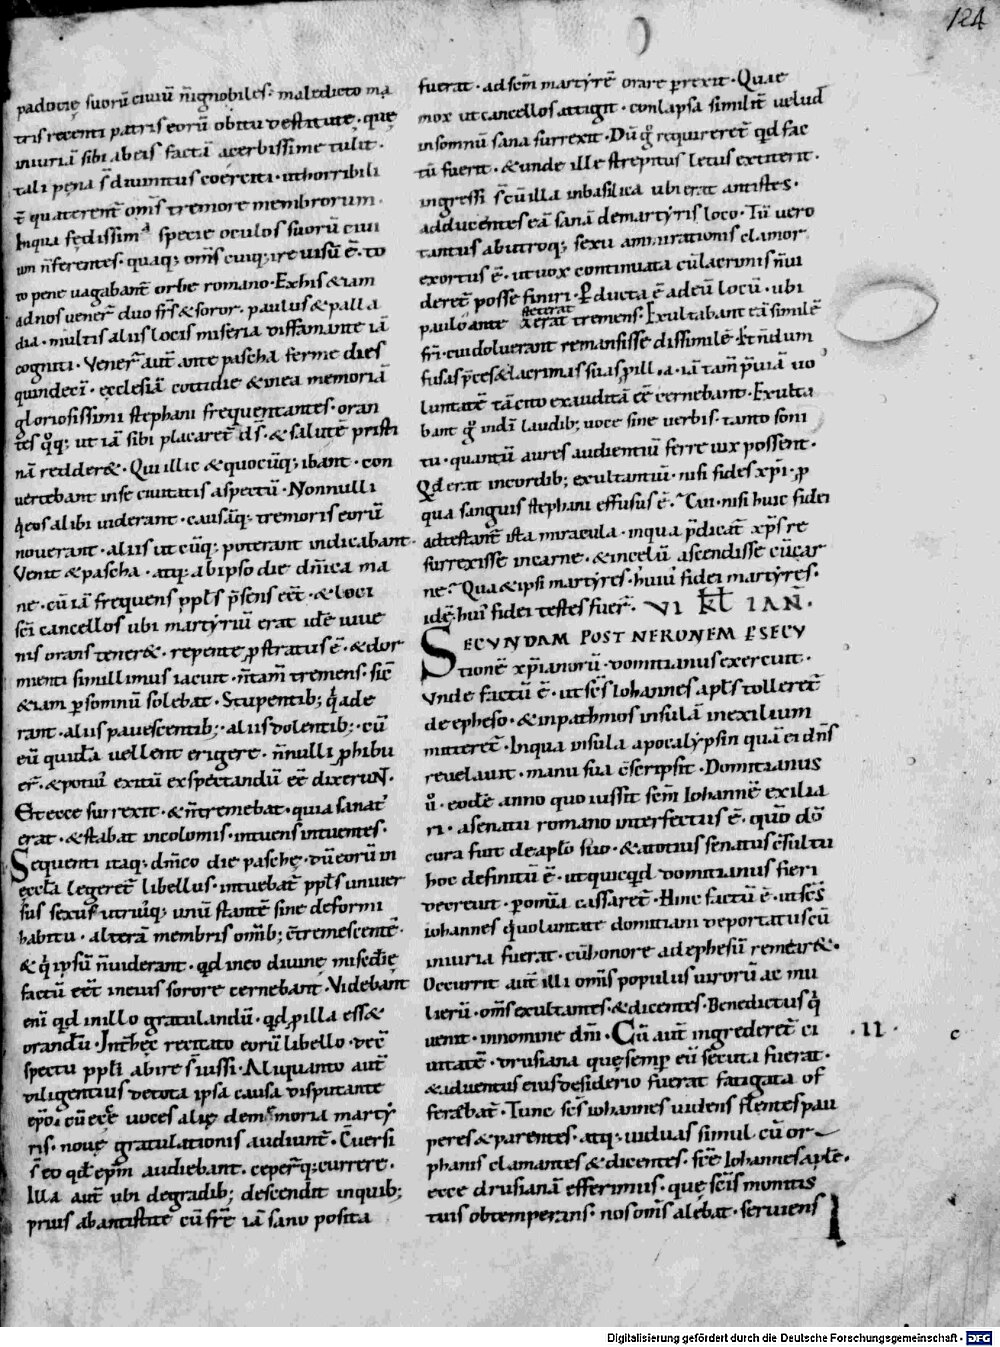 124
padocię suorū ciuiū n̄ ignobiles · maledicto ma
tris recenti patris eorū obitu destitute · que
iniuriā sibi ab eis factā acerbissime tulit ·
tali pena s̄ diuinitus coerciti · ut horribili
t̄ quaterent̄ om̄s tremore membrorum ·
In qua fędissima specie oculos suorū ciui
um n̄ ferentes · quaq; om̄s cuiq; ire uisū ē · to
to pene uagabant̄ orbe romano · Ex his & iam
ad nos uener̄ duo fr̄s & soror · paulus & palla
dia · multis aliis locis miseria diffamante iā
cogniti · Vener̄ aut̄ ante pascha ferme dies
quindecī · ecclesiā cottidie & in ea memoriā
gloriosissimi stephani frequentantes · oran
tes q̊q; ut iā sibi placaret̄ d̄s · & salutē pristi
nā redder& · Qui illic & quocūq; ibant · con
uertebant in se ciuitatis aspectū · Nonnulli
q̇ eos alibi uiderant · causāq; tremoris eorū
nouerant · aliis ut cūq; poterant indicabant ·
Venit & pascha · atq; ab ipso die dn̄ica ma
ne · cū iā frequens ppl̄s p̄sens eēt · & loci
sc̄i cancellos ubi martyriū erat idē iuue
nis orans tener& · repente ꝓstratus ē · & dor
mienti simillimus iacuit · n̄ tam̄ tremens · sic̄
& iam ꝑ somnū solebat · Stupentib; q̇ ade
rant · aliis pauescentib; · aliis dolentib; · cū
eū quidā uellent erigere · n̄nulli ꝓhibu
er̄ · & potiu' exitū exspectandū eē dixerunt ·
Et ecce surrexit · & n̄ tremebat · quia sanat'
erat · & stabat incolomis · intuens intuentes ·
Sequenti itaq; dn̄ico die paschę · dū eorū in
eccl̄a legeret̄ libellus · intuebat̄ ppl̄s uniuer
sus sexus utriusq; unū stantē sine deformi
habitu · alterā membris omīb; c̄tremescentē ·
& q̇ ipsū n̄ uiderant · qd̄ in eo diuinę misc̄dię
factū eēt in eius sorore cernebant · Videbant
enī qd̄ in illo gratulandū · qd̄ ꝓ illa ess&
orandū · Int̄ hęc recitato eorū libello · de c̄
spectu ppl̄i abire s̄ iussi · Aliquanto aut̄
diligentius de tota ipsa causa disputante
ep̄o · cū ecc̄e uoces alię de memoria marty
ris · nouę gratulationis audiunt̄ · C̄uersi
s̄ eo qd̄ ep̄m audiebant · ceper̄q; currere ·
Illa aut̄ ubi de gradib; descendit in quib;
prius ab antistite cū fr̄e iā sano posita
fuerat · ad sc̄m martyrē orare perexit · Quae
mox ut cancellos attigit · conlapsa similit̄ uelud
in somnū sana surrexit · Dū g̊ requireret̄ qd̄ fac
tū fuerit · & unde ille strepitus letus extiterit ·
ingressi s̄ cū illa in basilica ubi erat antistes ·
adducentes eā sanā de martyris loco · Tū uero
tantus ab utroq; sexu ammirationis clamor
exortus ē · ut uox continuata cū lacrimis n̄ ui
deret̄ posse finiri · Perducta ē ad eū locū · ubi
paulo ante steterat tremens · Exultabant eā similē
fr̄i · cui doluerant remansisse dissimilē · Et n̄dum
fusas p̄ces & lacrimas suas ꝓ illa · iā tam̄ p̄uiā uo
luntatē tā cito exauditā eē cernebant · Exulta
bant g̊ in dī laudib; uoce sine uerbis · tanto soni
tu · quantū aures audientiū ferre uix possent ·
Qd̄ erat in cordib; exultantiū · nisi fides xp̄i · ꝓ
qua sanguis stephani effusus ē · Cui · nisi huic fidei
adtestant̄ ista miracula · in qua p̄dicat̄ xp̄s re
surrexisse in carne · & in celū ascendisse cū car
ne · Qua & ipsi martyres · huiu' fidei martyres ·
idē hui' fidei testes fuer̄ · VI KL IAN̄ ·
SECVNDAM POST NERONEM P̄SECV
tionē xp̄ianorū · domitianus exercuit ·
Vnde factū ē · ut sc̄s Iohannes apl̄s tolleret̄
de epheso · & in pathmos insulā in exilium
mitteret̄ · In qua insula apocalypsin quā ei dn̄s
reuelauit · manu sua c̄scripsit · Domitianus
u̇ · eodē anno quo iussit sc̄m Iohannē exilia
ri · a senatu romano interfectus ē · quō dō
cura fuit de apl̄o suo · & totius senatus c̄sultu
hoc definitū ē · ut quicqd̄ domitianus fieri
decreuit · ꝑ omia cassaret̄ · Hinc factū ē · ut sc̄s
iohannes q̇ uoluntate domitiani deportatus cū
iniuria fuerat · cū honore ad ephesū remear& ·
Occurrit aut̄ illi om̄is populus uirorū ac mu
lierū · om̄s exultantes · & dicentes · Benedictus q̇
uenit · in nomine dn̄i · Cū aut̄ ingrederet̄ ci
uitatē · drusiana quę semp eū secuta fuerat ·
& aduentus eius desiderio fuerat fatigata of
ferebat̄ · Tunc sc̄s iohannes uidens flentes pau
peres & parentes · atq; uiduas simul cū or
phanis clamantes & dicentes · sc̄e Iohannes apl̄e ·
ecce drusianā efferimus · quę sc̄is monitis
tuis obtemperans · nos om̄s alebat · seruiens
· II ·
Digitalisierung gefördert durch die Deutsche Forschungsgemeinschaft - DFG